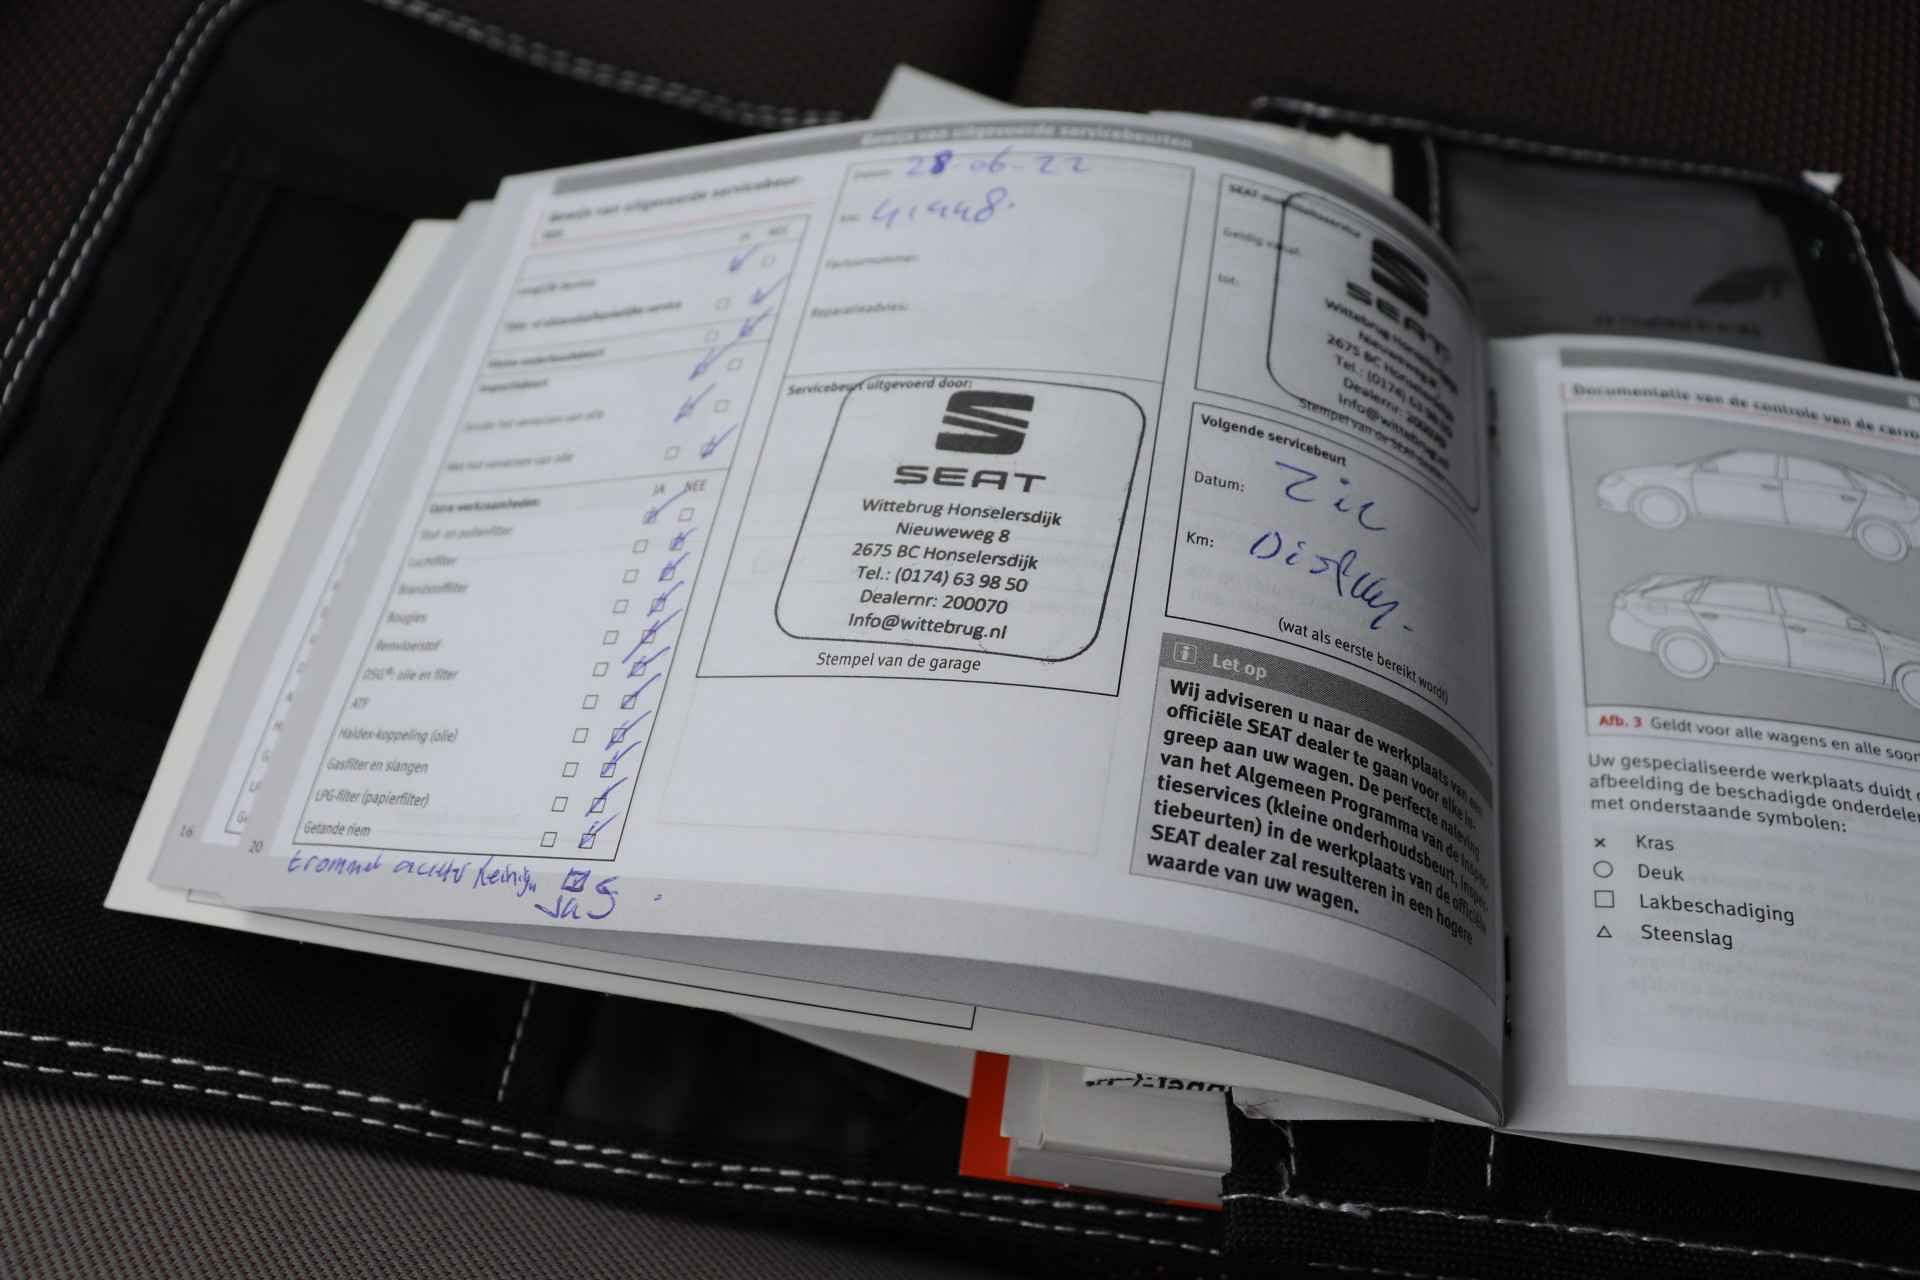 Bewijs van uitgevoerde servicebeurten
Bewijs van uitgevoerde servicebeur-
ten
JA NEE
LongLife Service
Tijds- of kilometerafhankelijke service
Kleine onderhoudsbeurt
Inspectiebeurt
Zonder het verversen van olie
Met het verversen van olie
Extra werkzaamheden: JA NEE
Stof- en pollenfilter
Luchtfilter
Brandstoffilter
Bougies
Remvloeistof
DSG®: olie en filter
ATF
Haldex-koppeling (olie)
Gasfilter en slangen
LPG-filter (papierfilter)
Getande riem
trommel achter Reinig
Ja
16
20
Datum: 28-06-22
Km: 41448.
Factuurnummer:
Reparatieadvies:
Servicebeurt uitgevoerd door:
SEAT
Wittebrug Honselersdijk
Nieuweweg 8
2675 BC Honselersdijk
Tel.: (0174) 63 98 50
Dealernr: 200070
Info@wittebrug.nl
Stempel van de garage
SEAT mobiliteitsservice
Geldig vanaf:
tot:
SEAT
Wittebrug Honselersdijk
Nieuweweg 8
2675 BC Honselersdijk
Tel.: (0174) 63 98 50
Dealernr: 200070
Info@wittebrug.nl
Stempel van de SEAT dealer
Volgende servicebeurt
Datum: Zie
Km: Display.
(wat als eerste bereikt wordt)
i Let op
Wij adviseren u naar de werkplaats van een
officiële SEAT dealer te gaan voor elke in-
greep aan uw wagen. De perfecte naleving
van het Algemeen Programma van de Inspec-
tieservices (kleine onderhoudsbeurt, inspec-
tiebeurten) in de werkplaats van de officiële
SEAT dealer zal resulteren in een hogere
waarde van uw wagen.
Documentatie van de controle van de carro
Afb. 3 Geldt voor alle wagens en alle soor
Uw gespecialiseerde werkplaats duidt
afbeelding de beschadigde onderdele
met onderstaande symbolen:
× Kras
○ Deuk
□ Lakbeschadiging
△ Steenslag